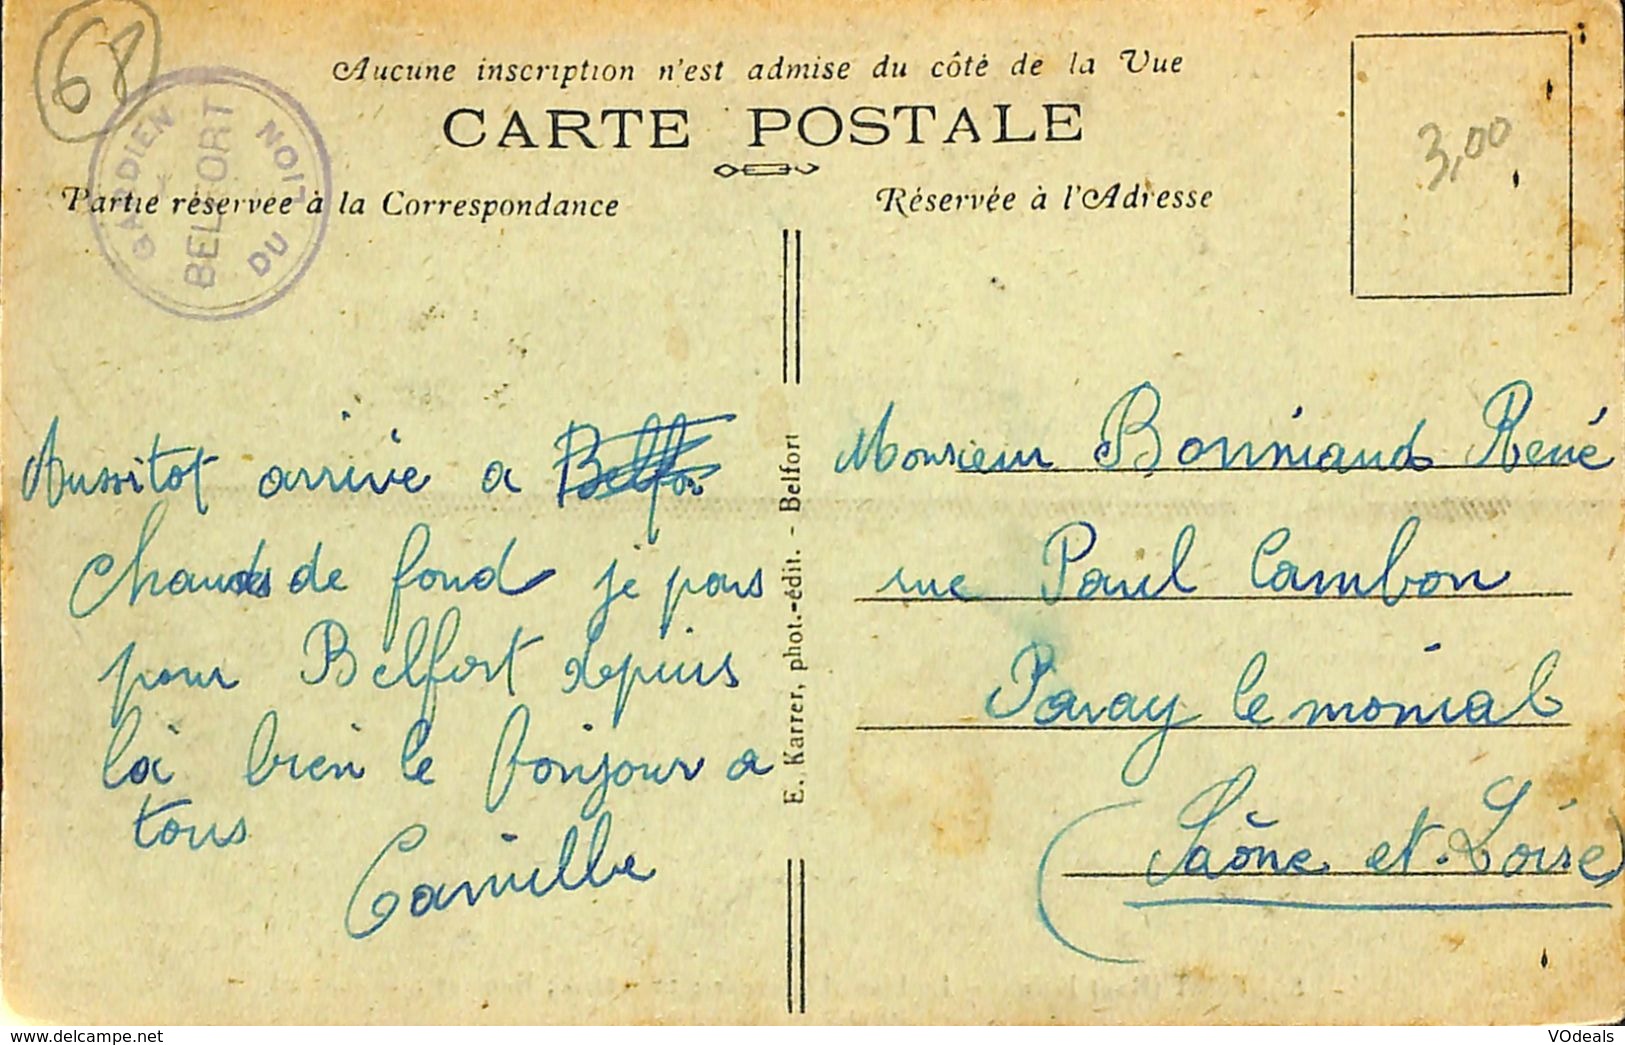 68
Aucune inscription n'est admise du côté de la Vue
CARTE POSTALE
GARDIEN DU LION
BELFORT
BELFORT
3,00
Partie réservée à la Correspondance
Réservée à l'Adresse
Aussitot arrivé a
Chaudes de fond je pars
pour Belfort depuis
loi bien le bonjour a
tous
Camille
E. Karrer, phot.-édit. - Belfort
Monsieur Bonniaud René
rue Paul Cambon
Paray le monial
(Saône et Loire)
www.delcampe.net
VOdeals